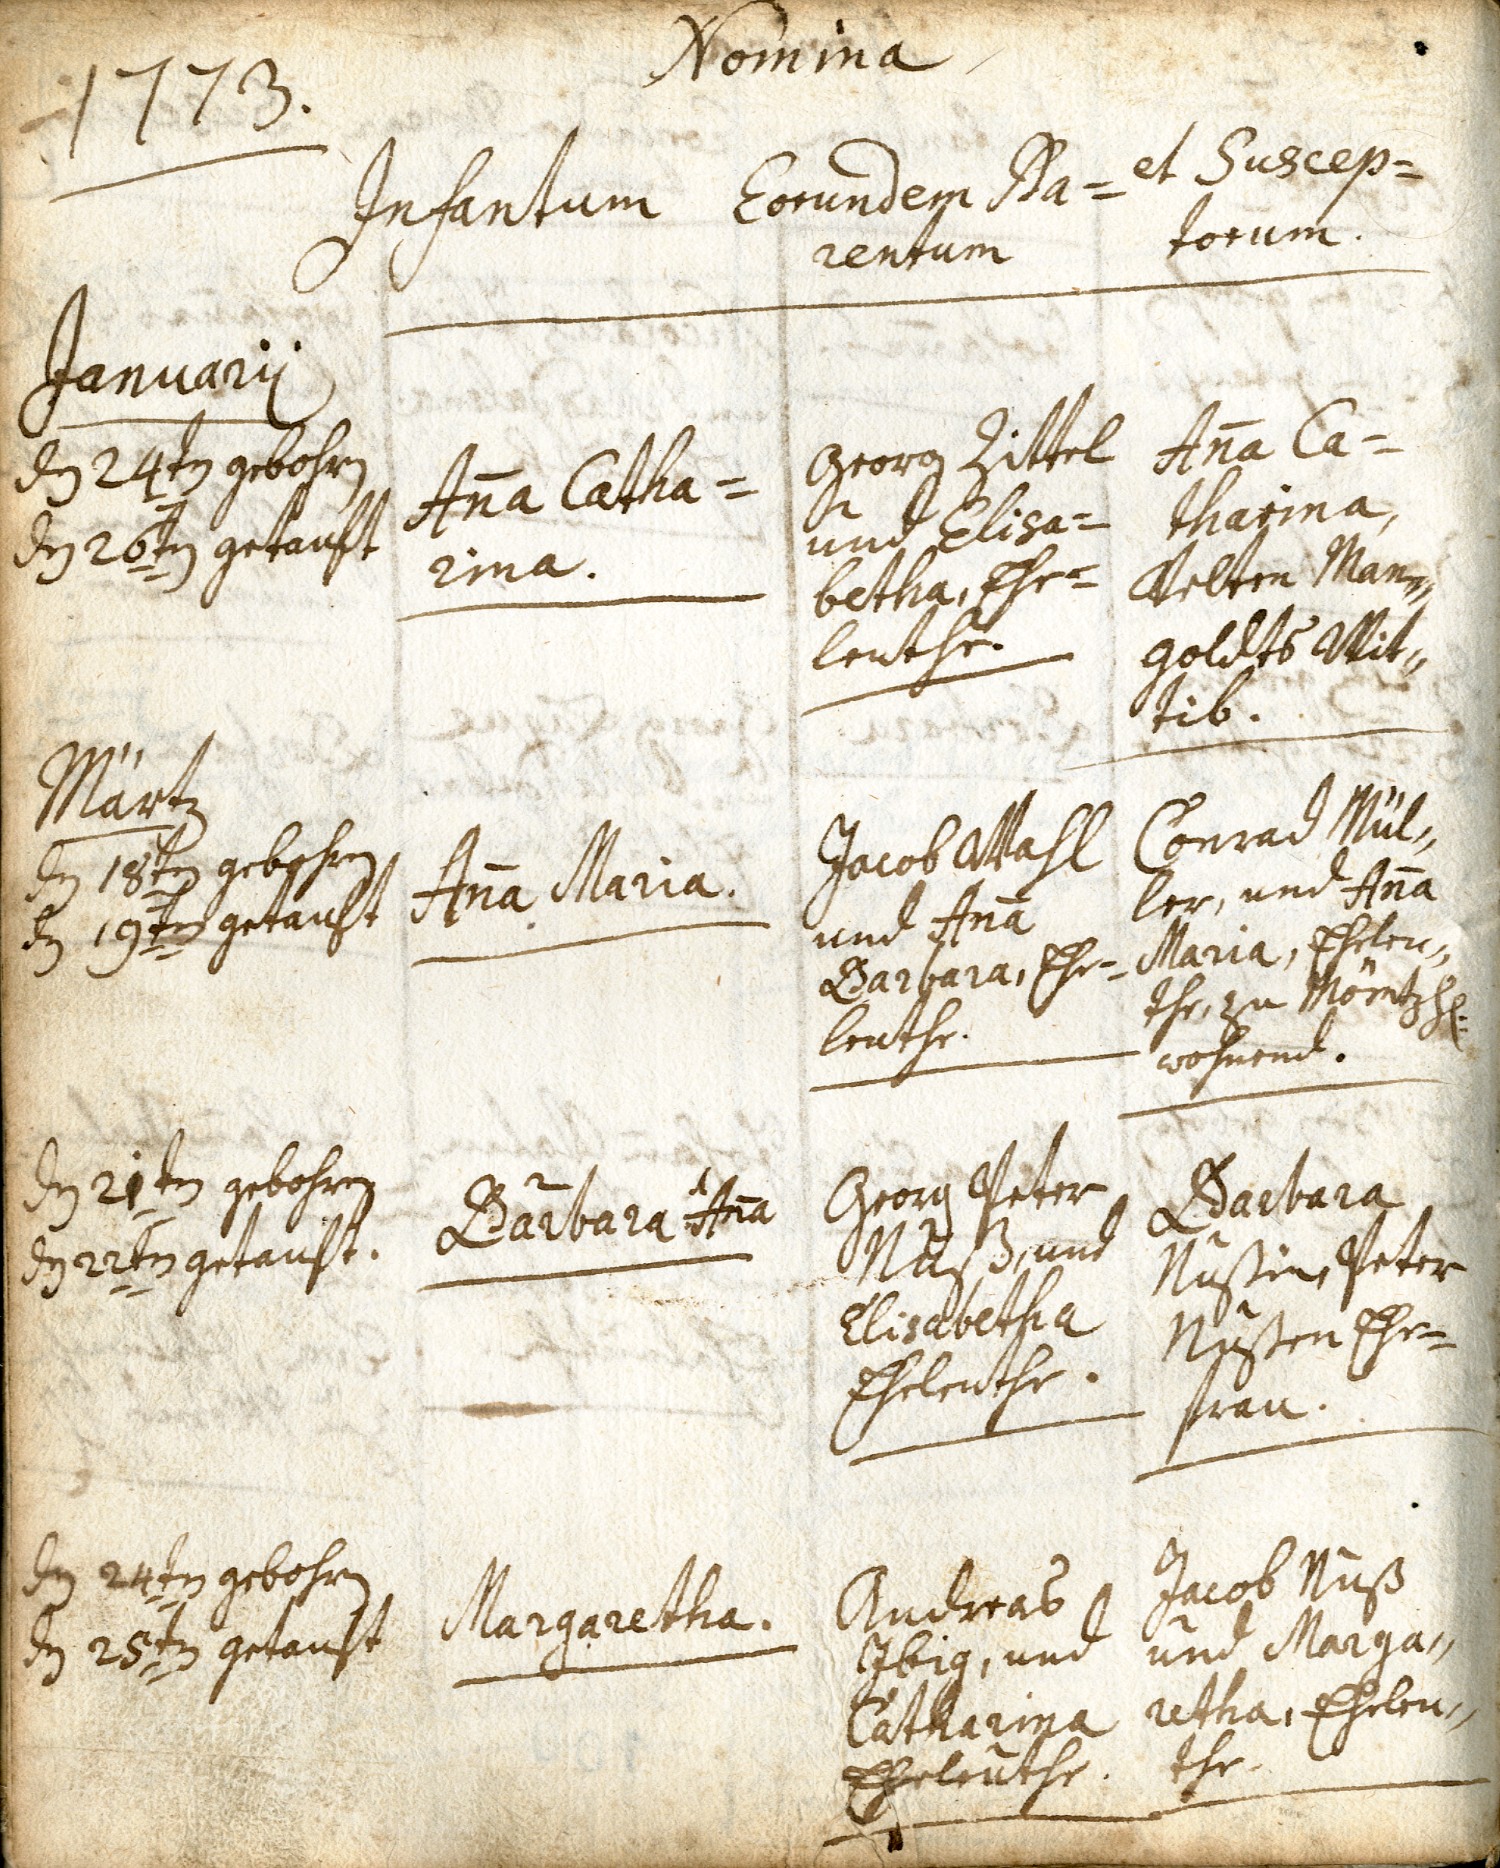 1773.
Nomina
Infantum
Eorundem Pa=
rentum
et Suscep=
torum.
Januarij
den 24ten gebohren
den 26ten getauft
Aña Catha=
rina.
Georg Zittel
und Elisa=
betha, Ehe=
leuthe.
Aña Ca=
tharina,
Velten Man„
goldts Wit„
tib.
Märtz
den 18ten gebohren
den 19ten getauft
Aña Maria.
Jacob Wahl
und Aña
Barbara, Ehe=
leuthe.
Conrad Mül„
ler, und Aña
Maria, Eheleu„
the, zu
wohnend.
den 21ten gebohren
den 22ten getauft.
2 1
Barbara Aña
Georg Peter
Nuß, und
Elisabetha
Eheleuthe.
Barbara
Nußin, Peter
Nußen Ehe=
frau.
den 24ten gebohren
den 25ten getauft
Margaretha.
Andreas
Ibig, und
Catharina
Eheleuthe.
Jacob Nuß
und Marga„
retha, Eheleu„
the.